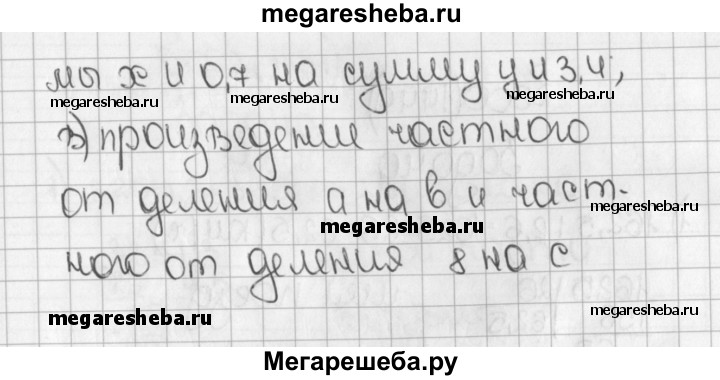 megaresheba.ru
мы х и 0,7 на сумму у и 3,4;
megaresheba.ru megaresheba.ru
з) произведение частного
от деления а на в и част-
megaresheba.ru
ного от деления 8 на с
megaresheba.ru
megaresheba.ru
Мегарешеба.ру